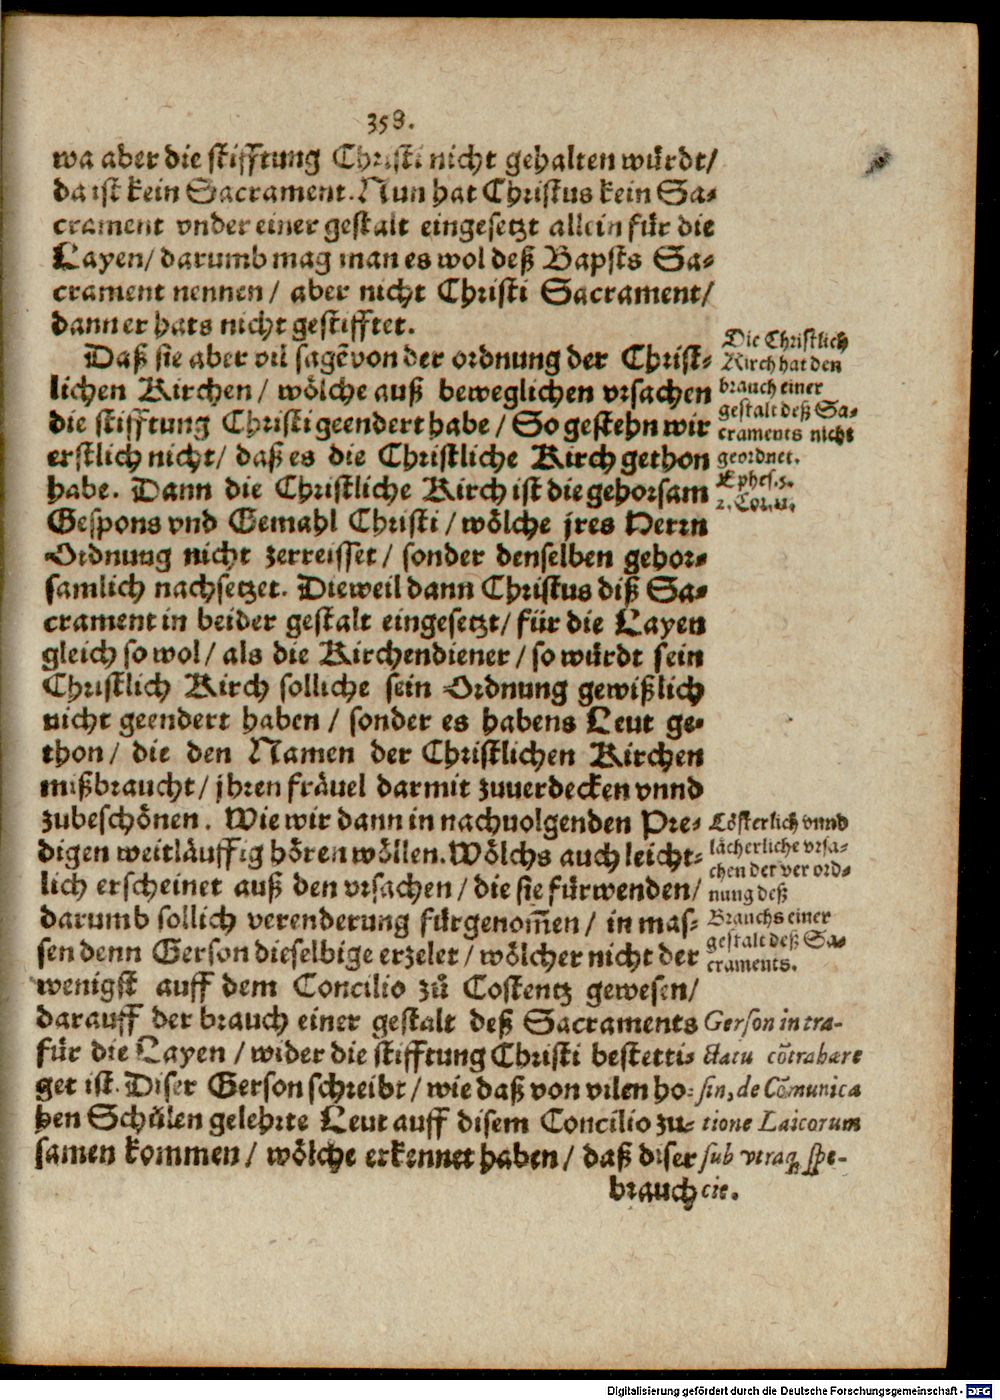 358.
wa aber die stifftung Christi nicht gehalten würdt/
da ist kein Sacrament. Nun hat Christus kein Sa-
crament vnder einer gestalt eingesetzt allein für die
Layen/ darumb mag man es wol deß Bapsts Sa-
crament nennen/ aber nicht Christi Sacrament/
dann er hats nicht gestifftet.
Daß sie aber vil sagẽ von der ordnung der Christ-
lichen Kirchen/ wölche auß beweglichen vrsachen
die stifftung Christi geendert habe/ So gestehn wir
erstlich nicht/ daß es die Christliche Kirch gethon
habe. Dann die Christliche Kirch ist die gehorsam
Gespons vnd Gemahl Christi/ wölche jres Herrn
Ordnung nicht zerreisset/ sonder denselben gehor-
samlich nachsetzet. Dieweil dann Christus diß Sa-
crament in beider gestalt eingesetzt/ für die Layen
gleich so wol/ als die Kirchendiener/ so würdt sein
Christlich Kirch solliche sein Ordnung gewißlich
nicht geendert haben/ sonder es habens Leut ge-
thon/ die den Namen der Christlichen Kirchen
mißbraucht/ jhren fräuel darmit zuuerdecken vnnd
zubeschönen. Wie wir dann in nachuolgenden Pre-
digen weitläuffig hören wöllen. Wölchs auch leicht-
lich erscheinet auß den vrsachen/ die sie fürwenden/
darumb sollich verenderung fürgenom̃en/ in mas-
sen denn Gerson dieselbige erzelet/ wölcher nicht der
wenigst auff dem Concilio zů Costentz gewesen/
darauff der brauch einer gestalt deß Sacraments
für die Layen/ wider die stifftung Christi bestetti-
get ist. Diser Gerson schreibt/ wie daß von vilen ho-
hen Schůlen gelehrte Leut auff disem Concilio zu-
samen kommen/ wölche erkennet haben/ daß diser
brauch
Die Christlich
Kirch hat den
brauch einer
gestalt deß Sa-
craments nicht
geordnet.
Ephes. 5.
2. Cor. 11.
Lösterlich vnnd
lächerliche vrsa-
chen der verord-
nung deß
Brauchs einer
gestalt deß Sa-
craments.
Gerson in tra-
ctatu cõtra hære
sin, de Cõmunica
tione Laicorum
sub vtraq; spe-
cie.
Digitalisierung gefördert durch die Deutsche Forschungsgemeinschaft - DFG